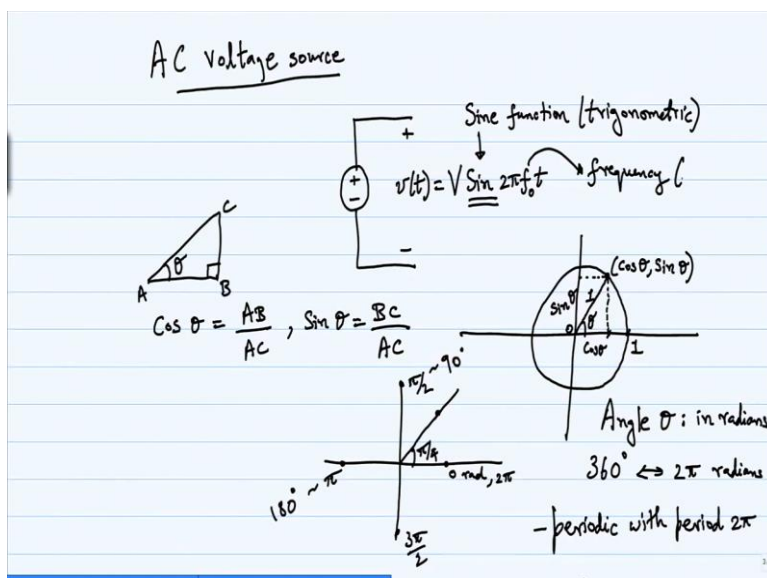 AC voltage source
Sine function (trigonometric)
+
+
-
v(t) = V Sin 2πf₀t
frequency (
-
C
θ
A
B
Cos θ = AB/AC , Sin θ = BC/AC
(cos θ, sin θ)
sin θ
1
θ
0
cos θ
1
π/2 ~ 90°
π/4
0 rad, 2π
180° ~ π
3π/2
Angle θ : in radians
360° ↔ 2π radians
- periodic with period 2π